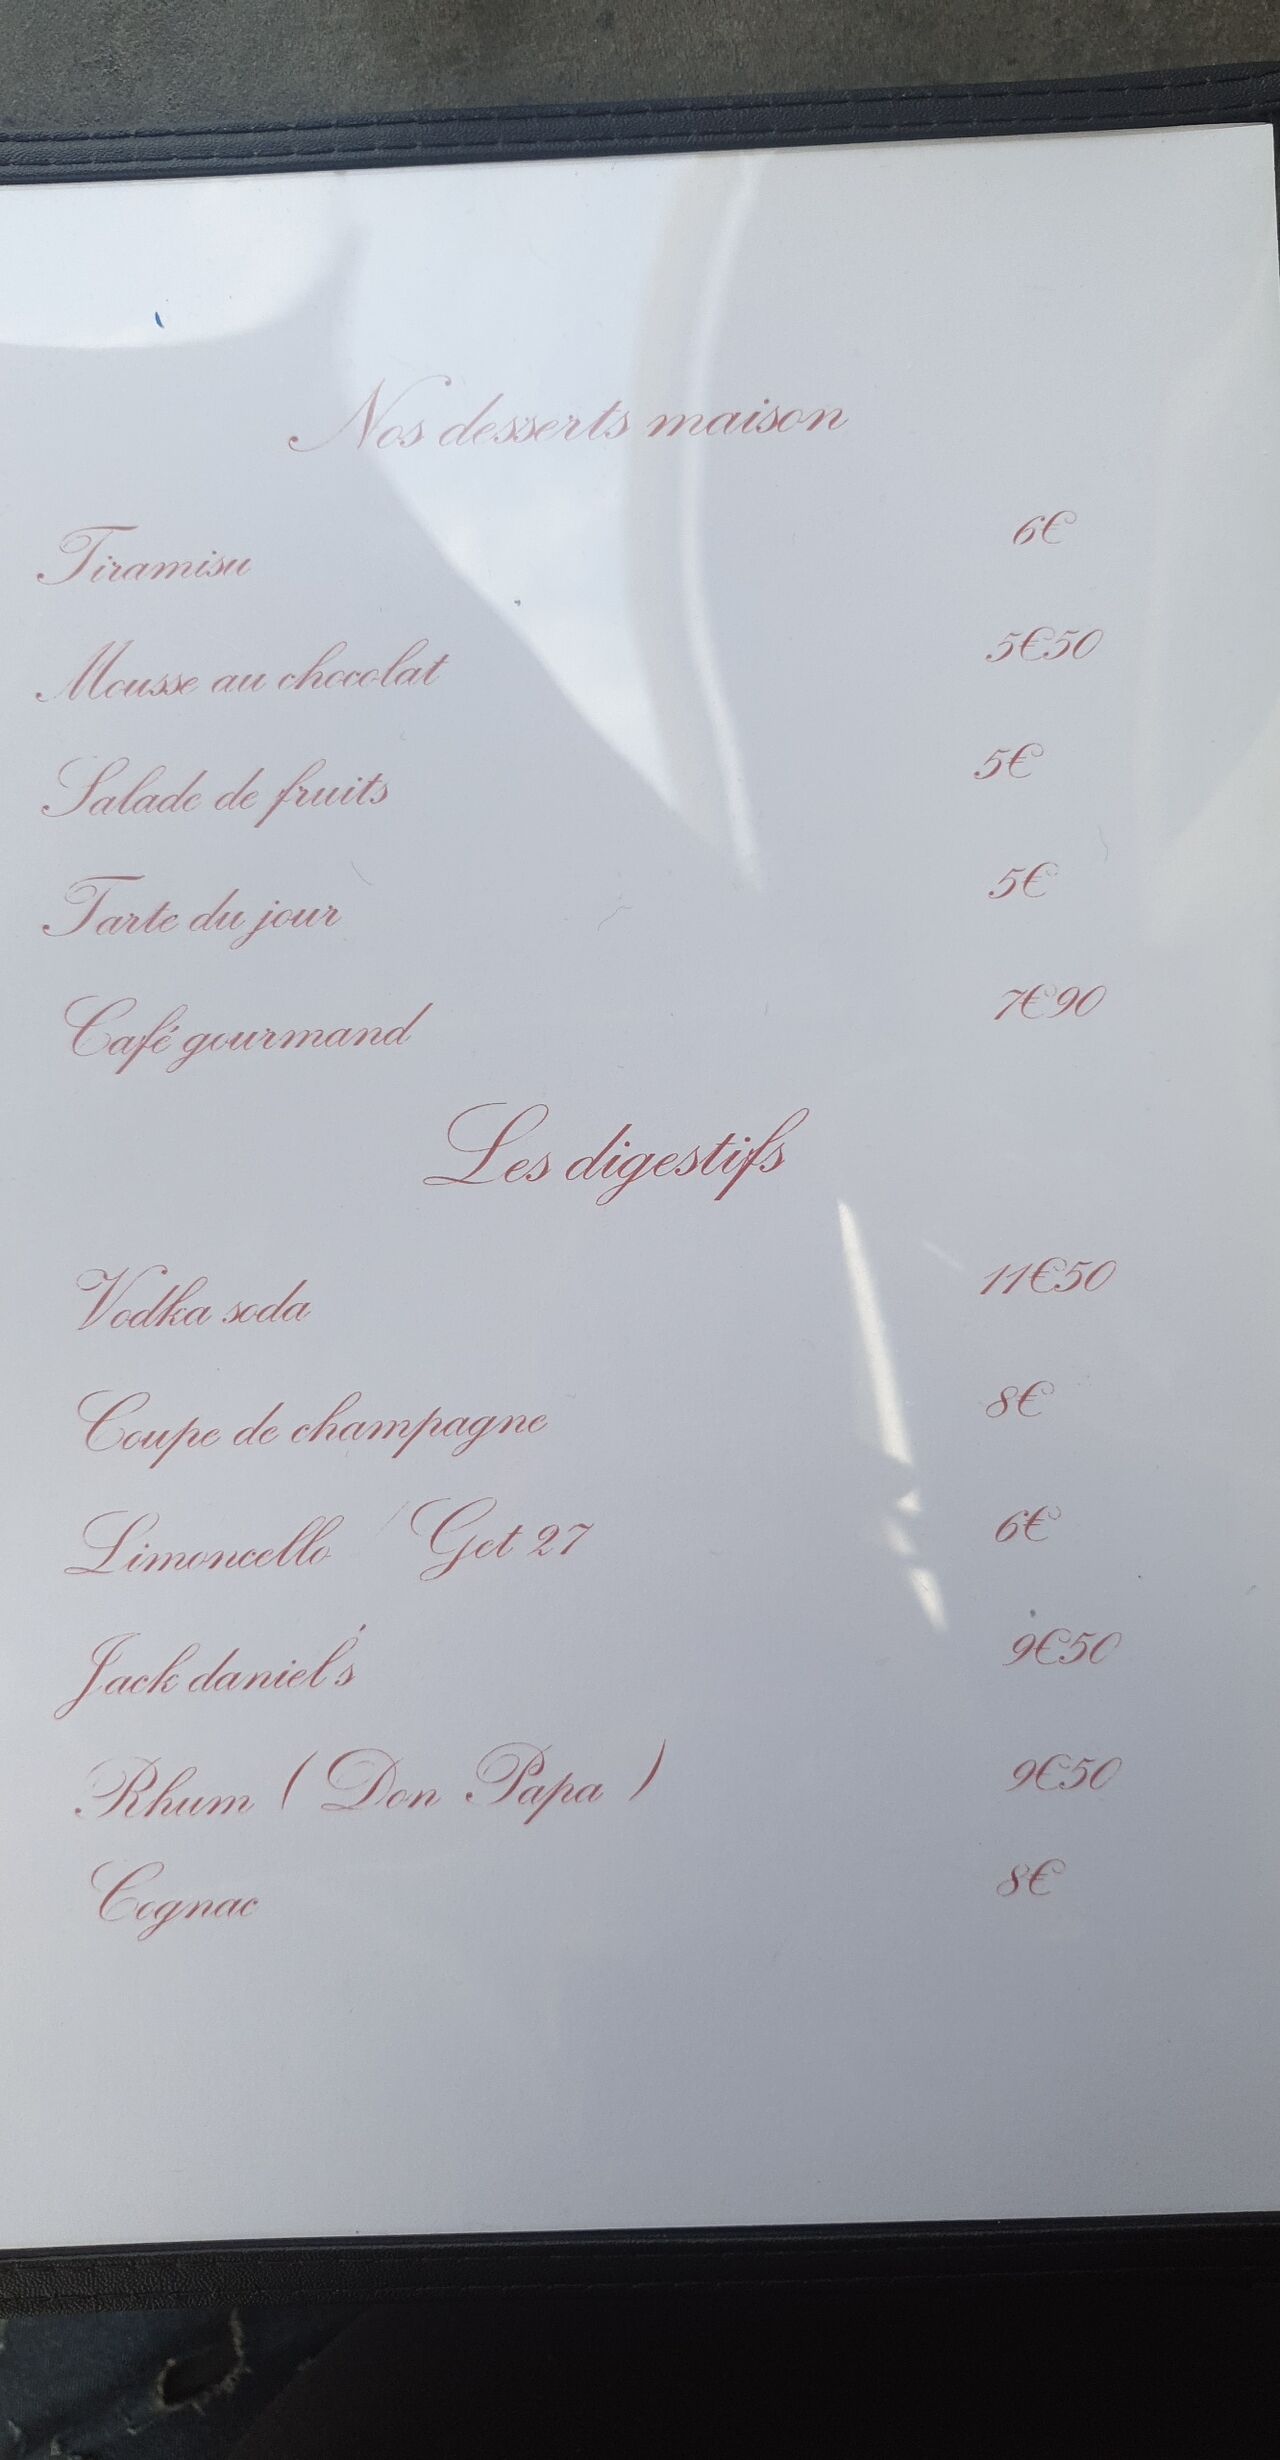 Nos desserts maison
Tiramisu 6€
Mousse au chocolat 5€50
Salade de fruits 5€
Tarte du jour 5€
Café gourmand 7€90
Les digestifs
Vodka soda 11€50
Coupe de champagne 8€
Limoncello Get 27 6€
Jack daniel's 9€50
Rhum ( Don Papa ) 9€50
Cognac 8€